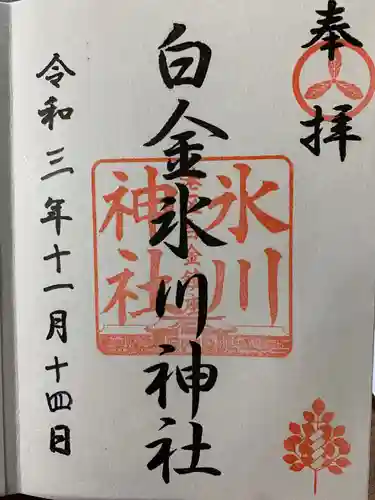 奉拝
白金氷川神社
氷川
神社
令和三年十一月十四日